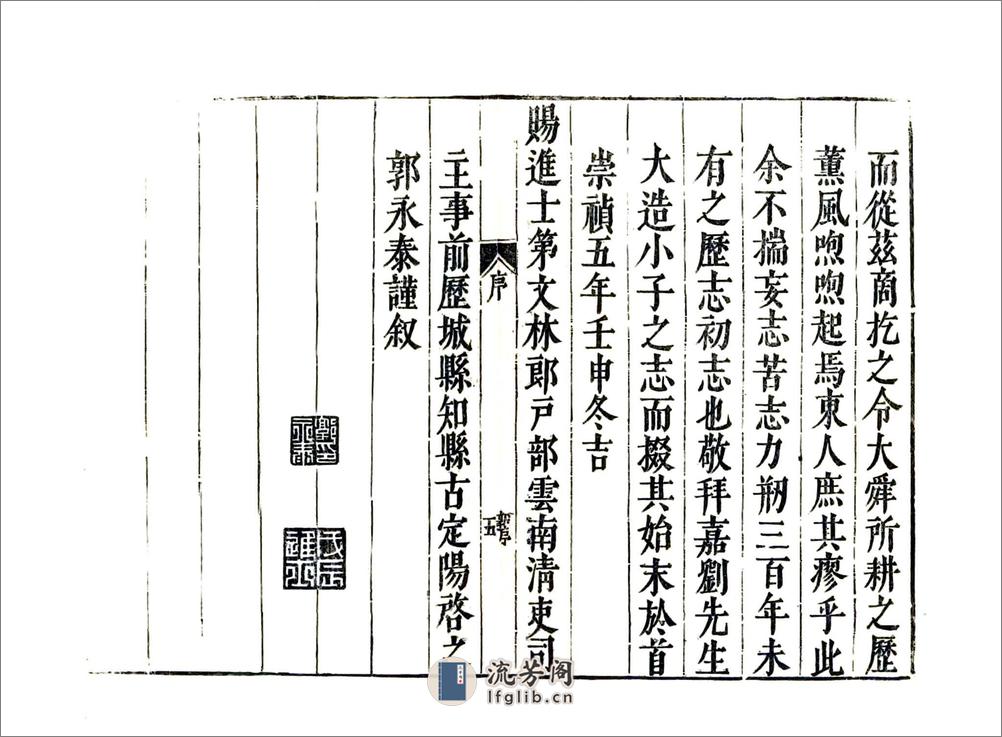 而從茲商扢之令大舜所耕之歷
薰風喣喣起焉東人庶其瘳乎此
余不揣妄志苦志力剏三百年未
有之歷志初志也敬拜嘉劉先生
大造小子之志而掇其始末於首
崇禎五年壬申冬吉
賜進士第文林郎戸部雲南清吏司
序
郭序
五
主事前歷城縣知縣古定陽啓之
郭永泰謹叙
郭永泰印
流芳阁
lfglib.cn